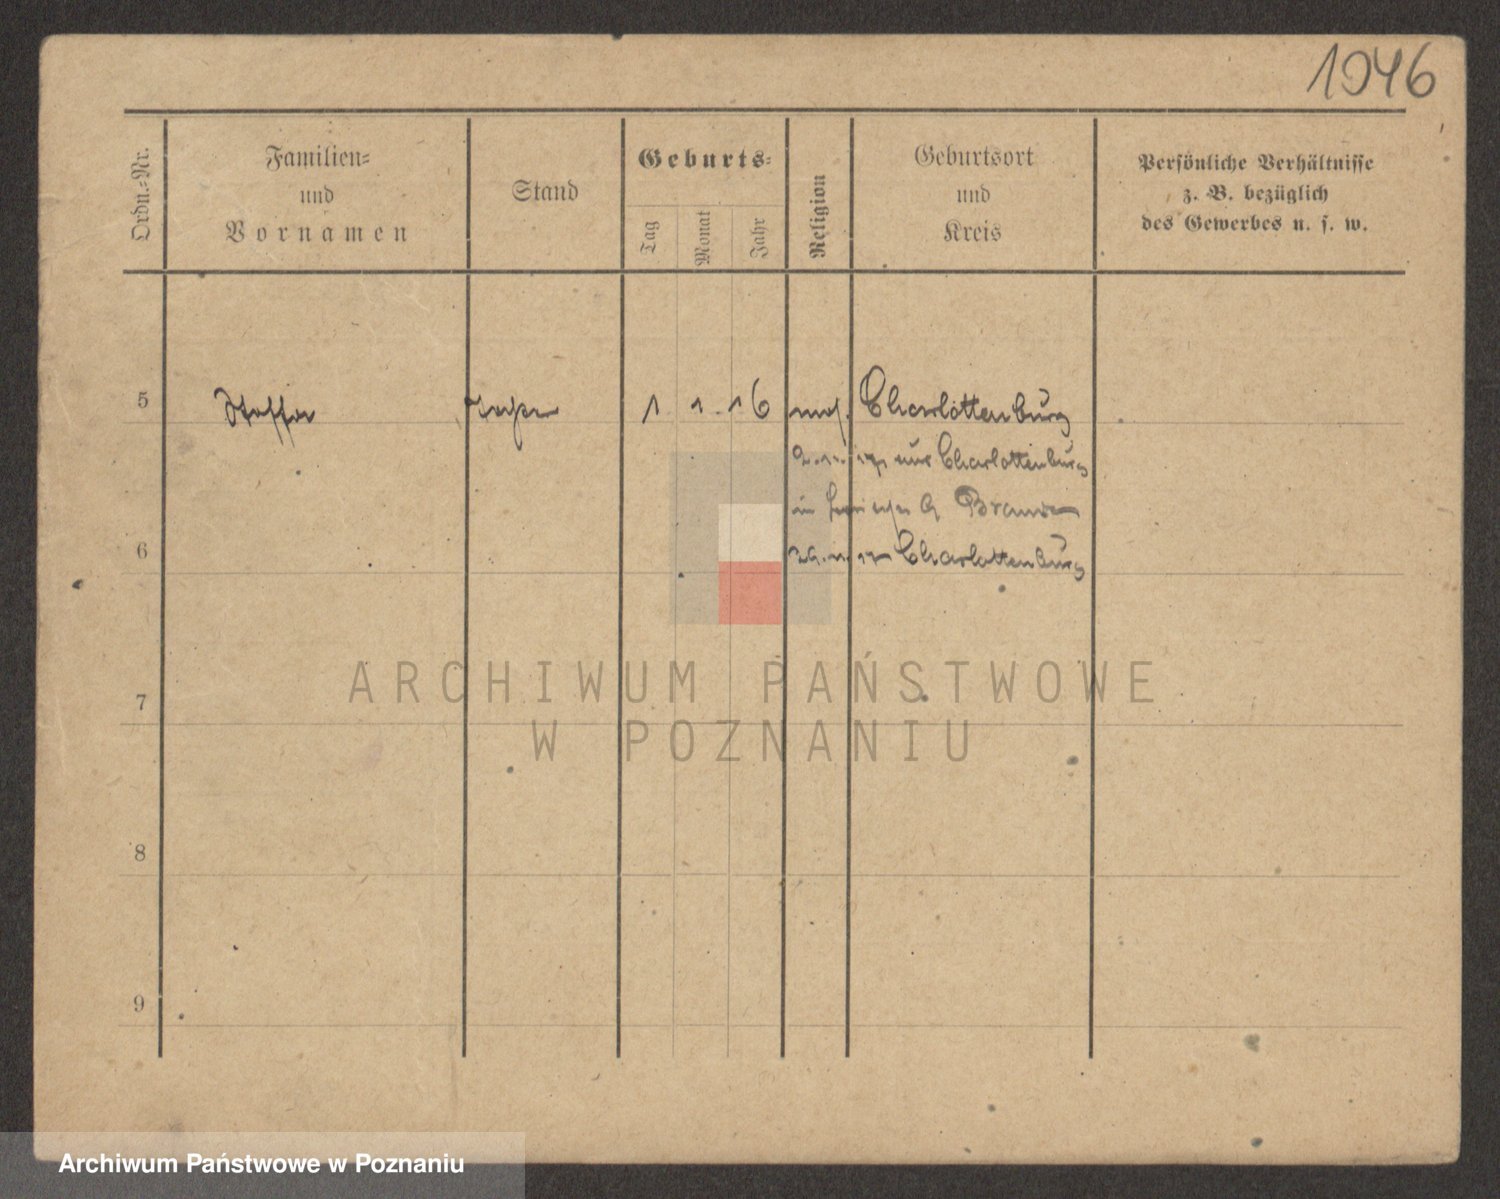 1946
Ordn.=Nr.
Familien=
und
Vornamen
Stand
Geburts=
Tag
Monat
Jahr
Religion
Geburtsort
und
Kreis
Persönliche Verhältnisse
z. B. bezüglich
des Gewerbes u. s. w.
5 1 1. 16 Charlottenburg
Charlottenburg
in
6 Charlottenburg
ARCHIWUM PAŃSTWOWE
W POZNANIU
7
8
9
Archiwum Państwowe w Poznaniu